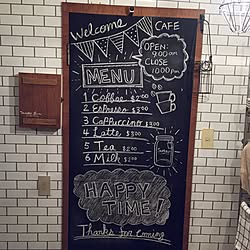 Welcome
CAFE
OPEN:
9:00am
CLOSE
10:00pm
MENU
1 Coffee $2.00
2 Espresso $3.00
3 Cappuccino $3.00
4 Latte $3.00
5 Tea $2.00
6 Milk $1.00
HAPPY
TIME!
Thanks for coming